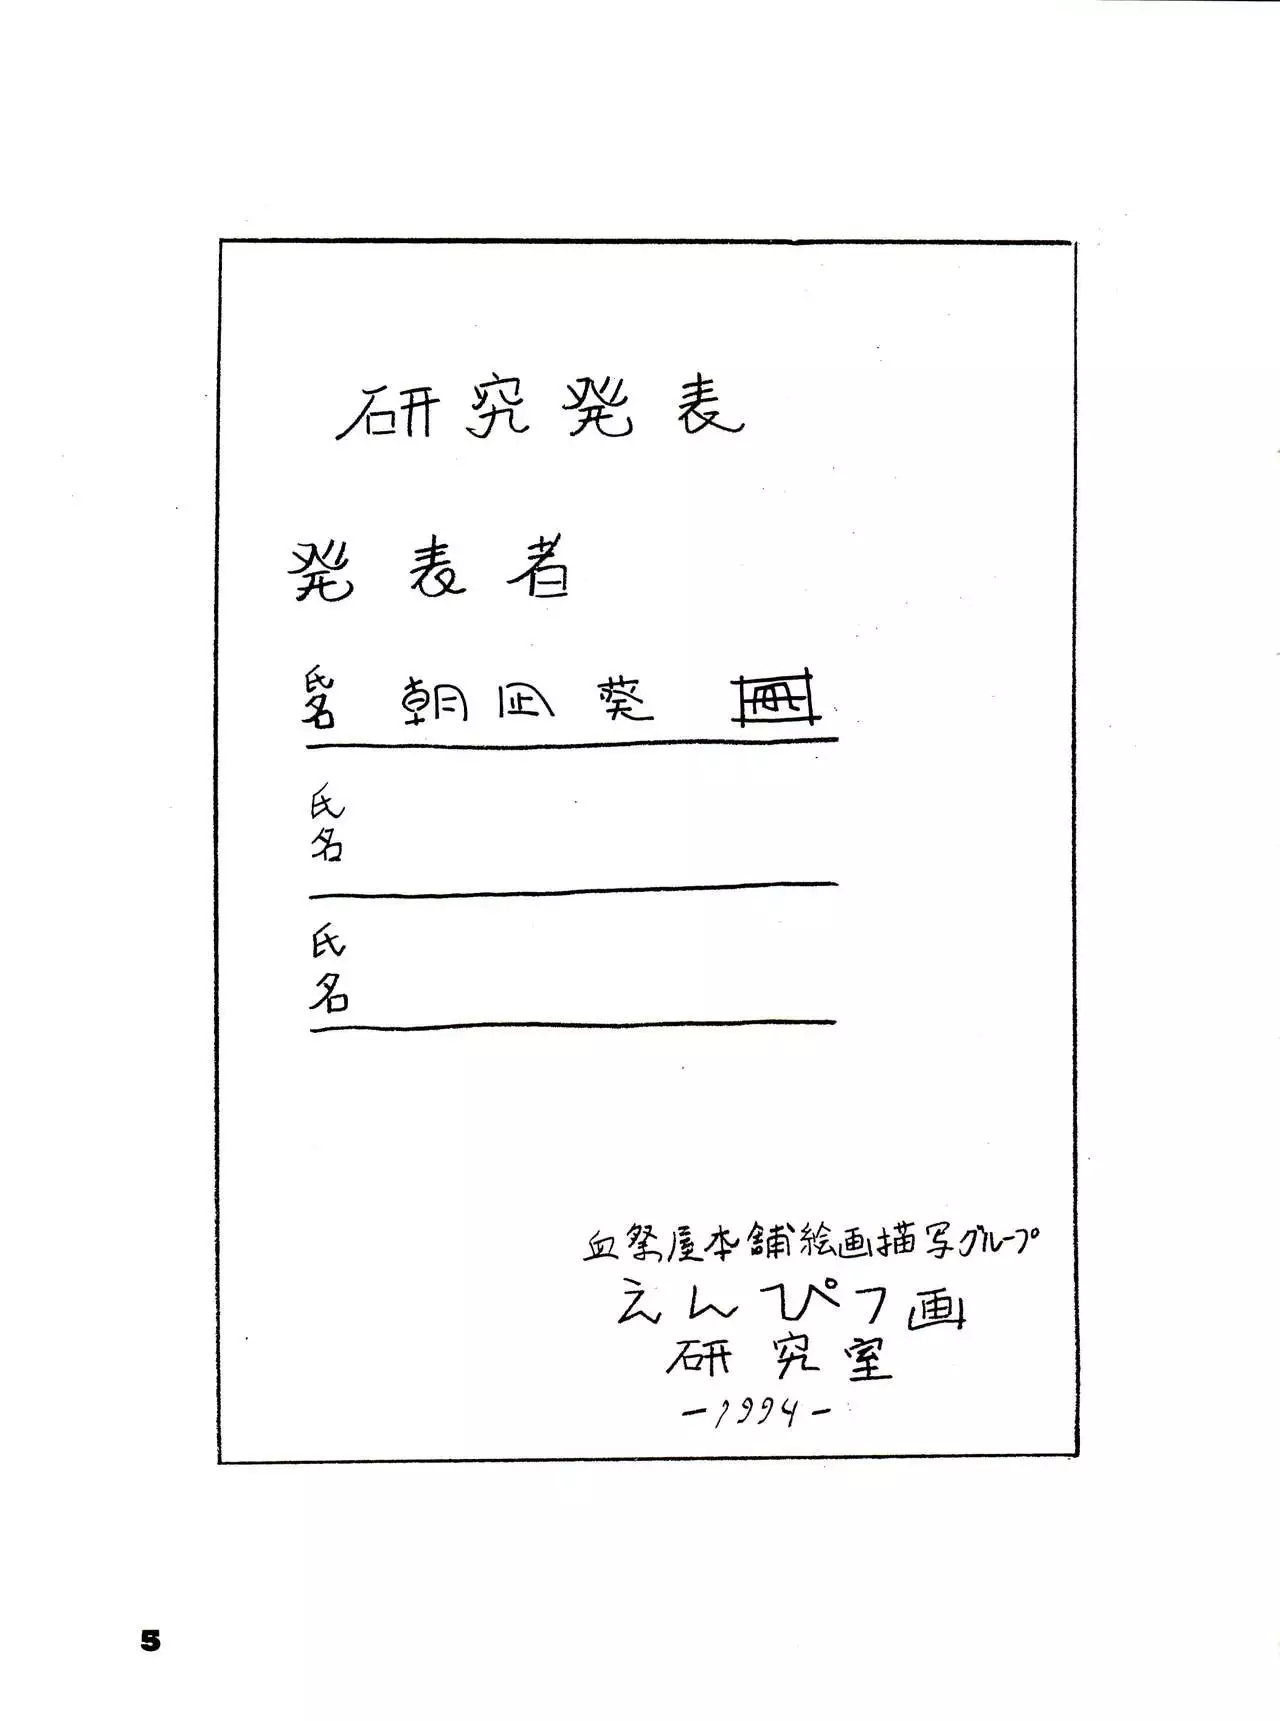 研究発表
発表者
氏名 朝凪葵
氏名
氏名
血祭屋本舗絵画描写グループ
えんぴつ画
研究室
-1994-
5